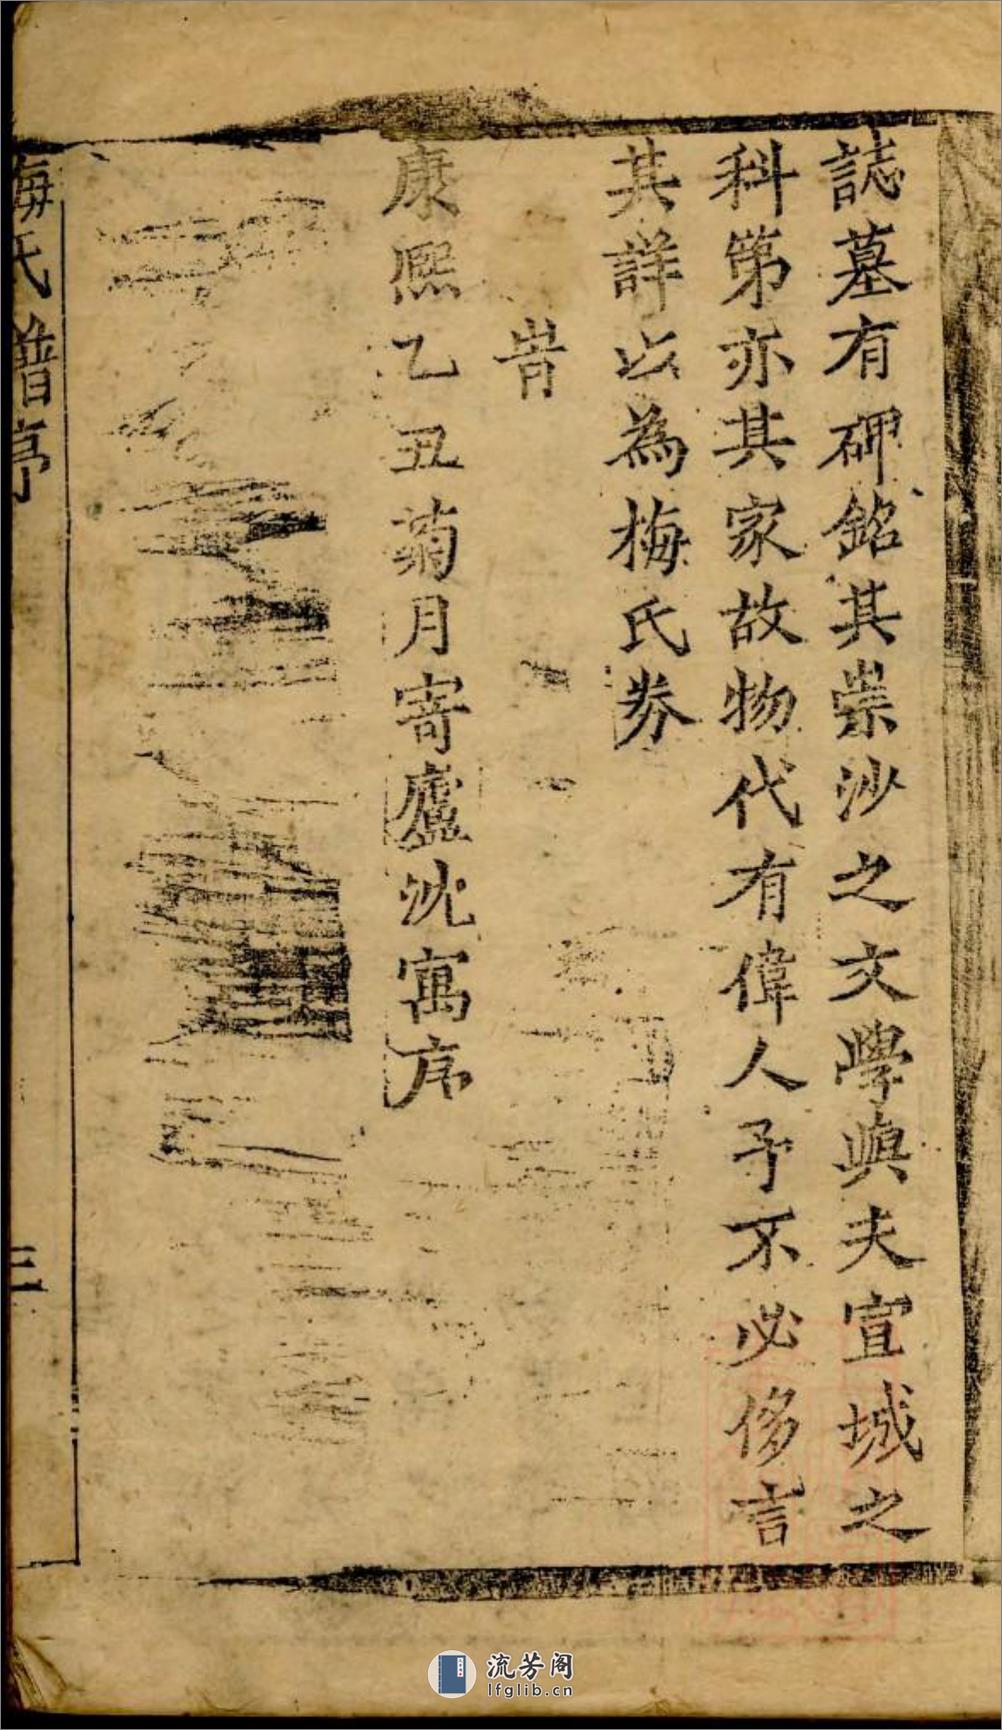 誌墓有碑銘其崇沙之文學與夫宣城之
科第亦其家故物代有偉人予不必侈言
其詳以為梅氏券
旹
康熙乙丑菊月寄廬沈寓序
梅氏譜序
三
流芳阁
lfglib.cn